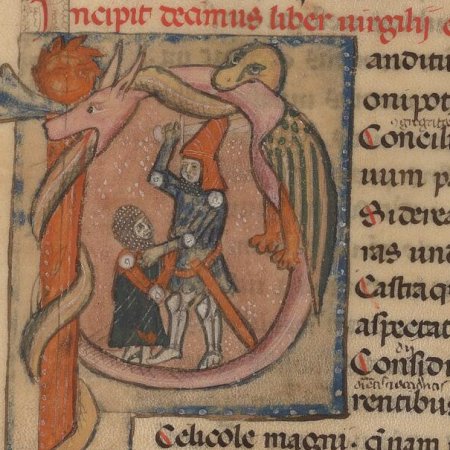 Incipit decimus liber virgilij
anditu
onipot
Concili
uum pa
Siderea
ras und
Castraqu
aspectat
dij
Consid
rentibus
Celicole magni. qnam